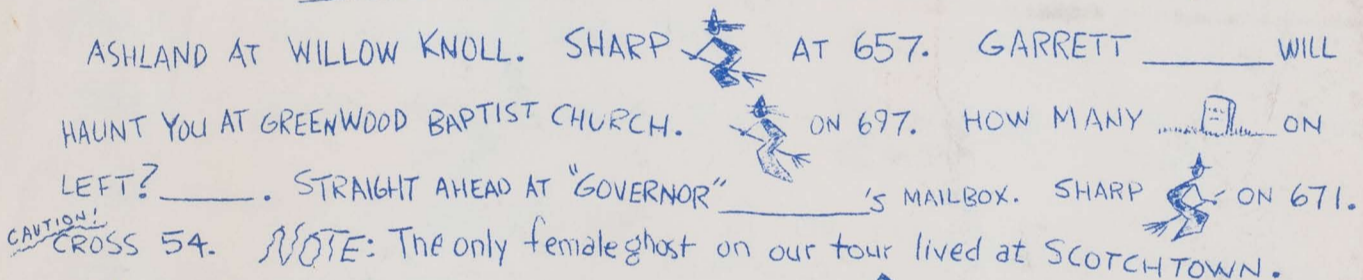 ASHLAND AT WILLOW KNOLL. SHARP AT 657. GARRETT ________ WILL
HAUNT YOU AT GREENWOOD BAPTIST CHURCH. ON 697. HOW MANY ON
LEFT? ______. STRAIGHT AHEAD AT "GOVERNOR" _________'S MAILBOX. SHARP ON 671.
CAUTION! CROSS 54. NOTE: The only female ghost on our tour lived at SCOTCHTOWN.